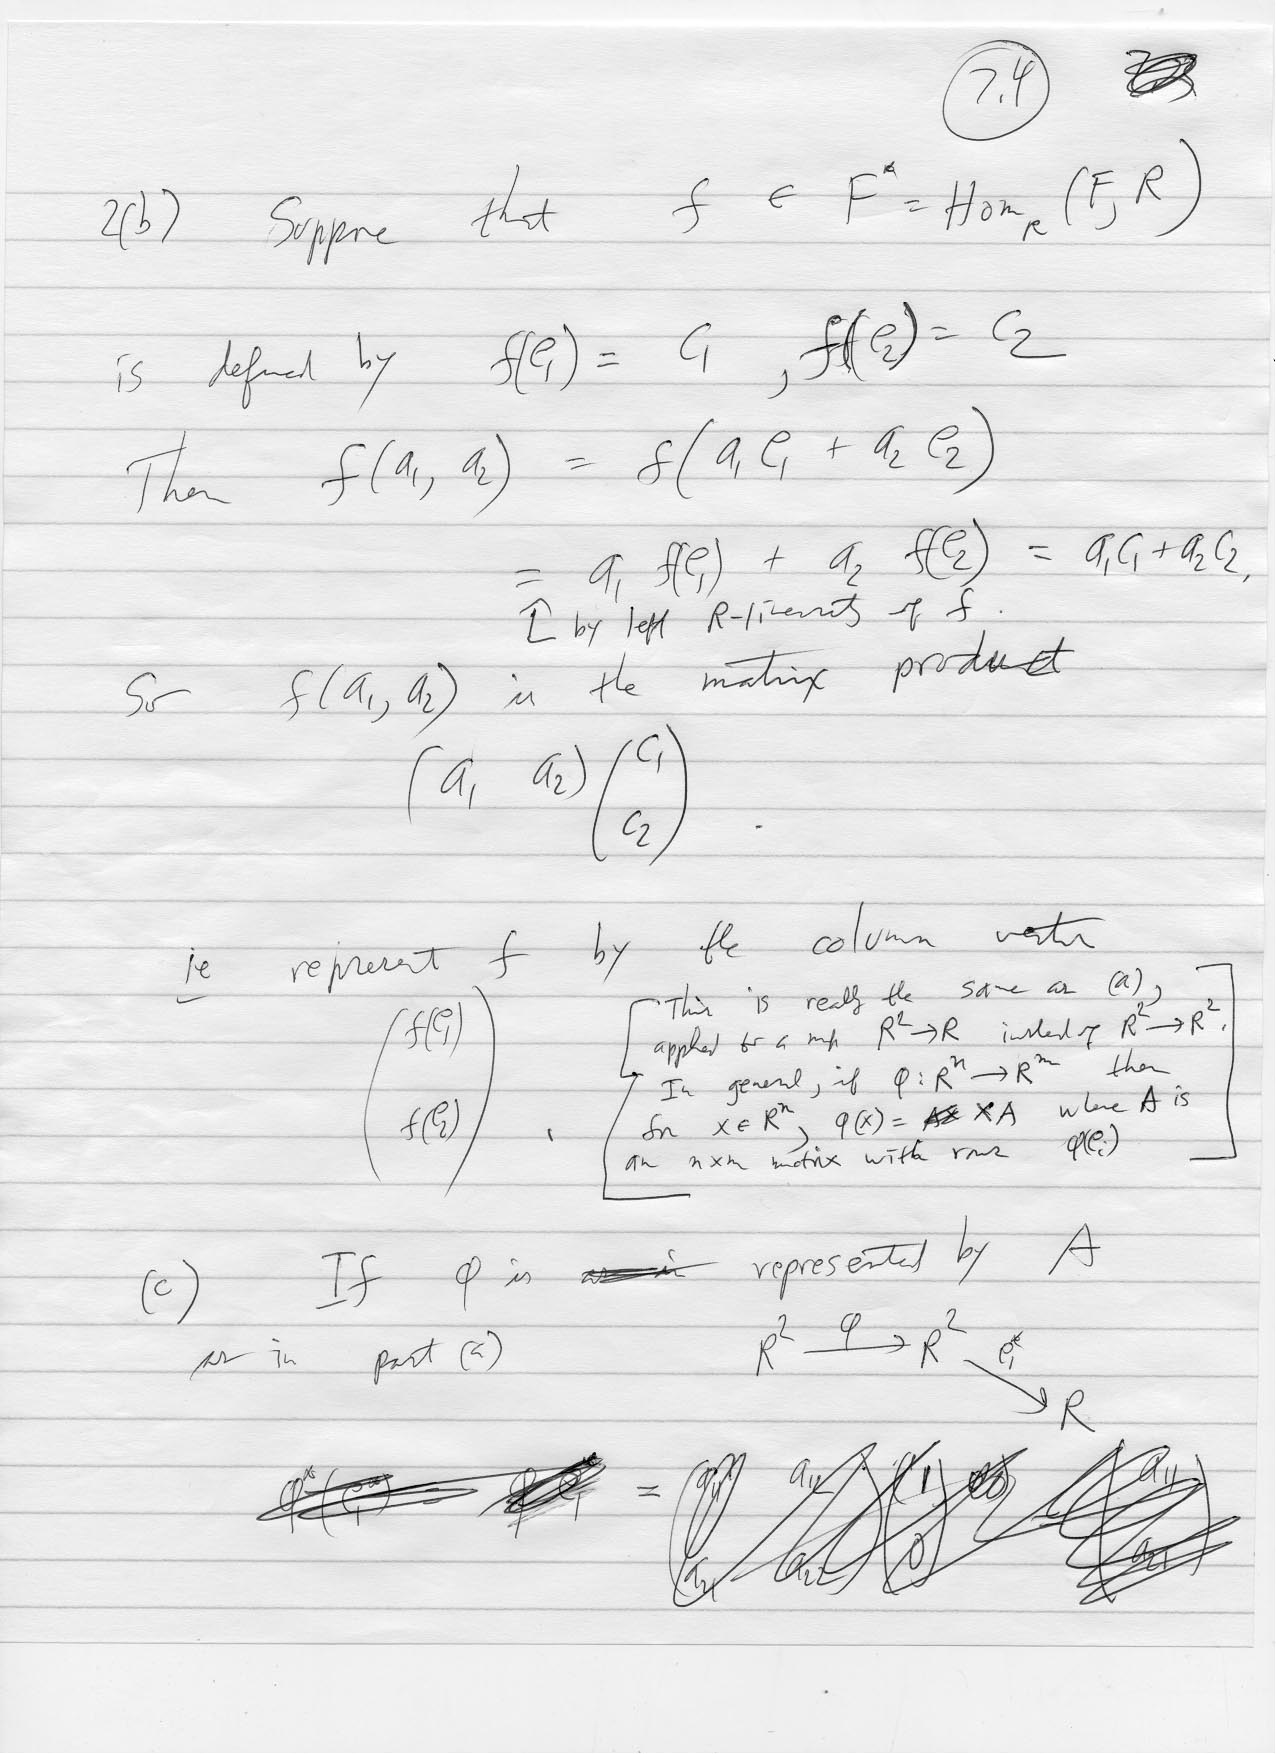 7.4
2(b) Suppose that f ∈ F* = Hom_R (F, R)
is defined by f(e₁) = c₁ , f(e₂) = c₂
Then f(a₁, a₂) = f(a₁ e₁ + a₂ e₂)
= a₁ f(e₁) + a₂ f(e₂) = a₁c₁ + a₂c₂,
↑ by left R-linearity of f.
So f(a₁, a₂) is the matrix product
(a₁ a₂) (c₁
c₂) .
ie represent f by the column vector
(f(e₁)
f(e₂)) ,
[This is really the same as (a),
applied to a map R² → R instead of R² → R².
In general, if φ : Rⁿ → Rᵐ then
for x ∈ Rⁿ, φ(x) = xA where A is
an n×m matrix with rows φ(eᵢ)]
(c) If φ is represented by A
as in part (a)
R² —φ→ R² e₁*
↘ R
=